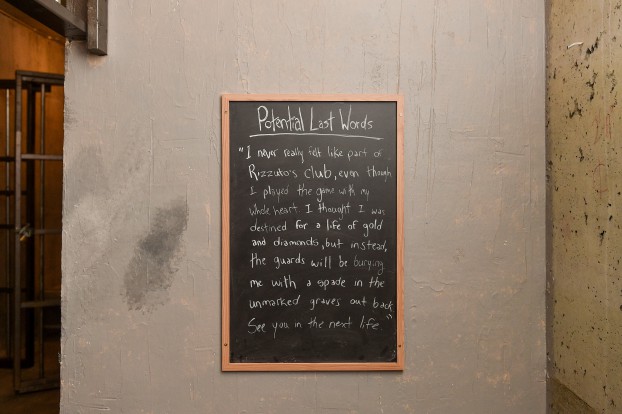 Potential Last Words
"I never really felt like part of
Rizzuto's club, even though
I played the game with my
whole heart I thought I was
destined for a life of gold
and diamonds, but instead,
the guards will be burying
me with a spade in the
unmarked graves out back
See you in the next life"